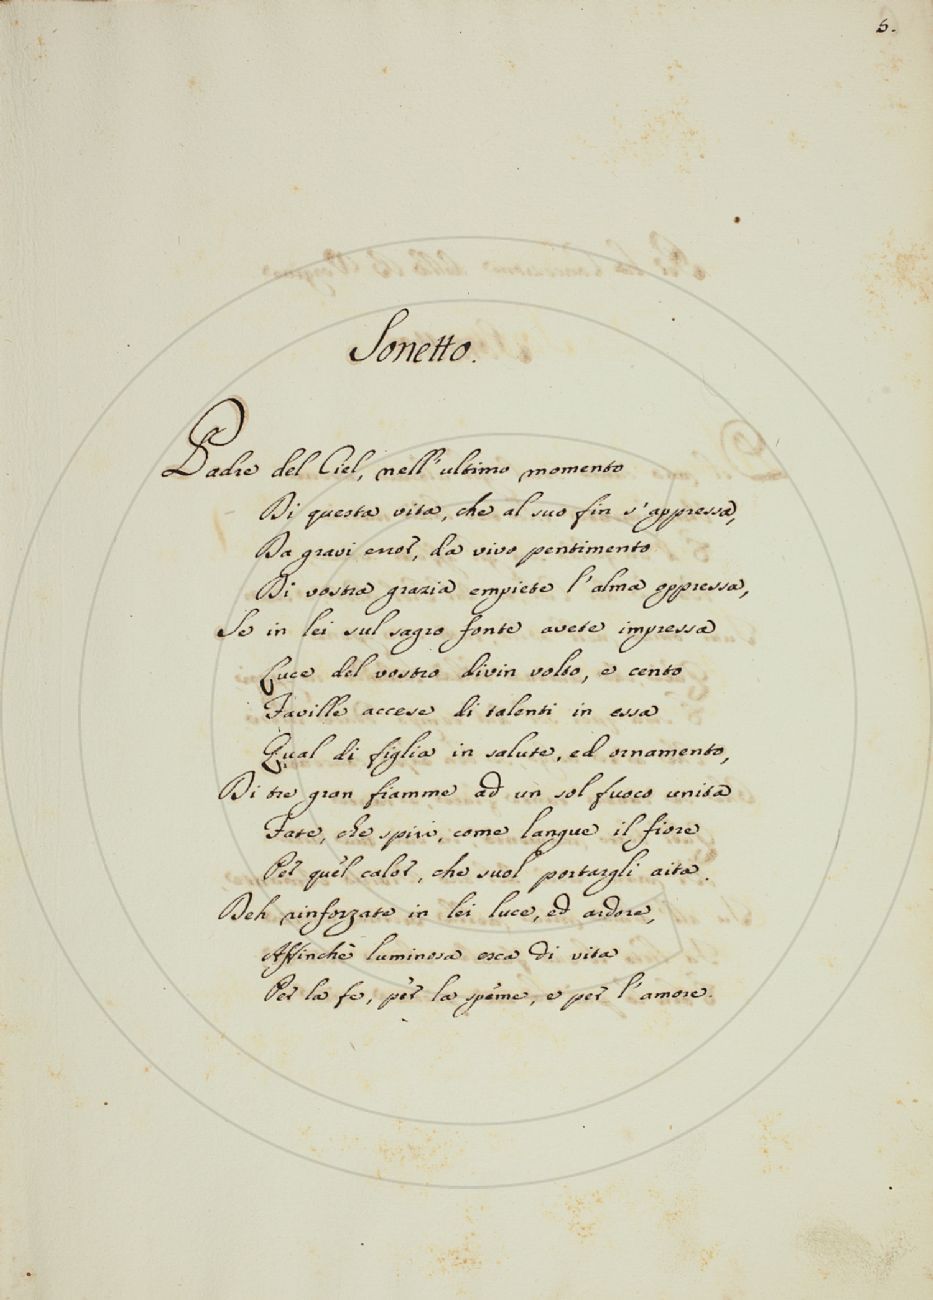 5.
Sonetto.
Padre del Ciel, nell'ultimo momento
Di questa vita, che al suo fin s'appressa,
Da gravi error, da vivo pentimento
Di vostra grazia empiete l'alma oppressa,
Se in lei sul sagro fonte avete impressa
Luce del vostro divin volto, e cento
Faville accese di talenti in essa
Qual di figlia in salute, ed ornamento,
Di tre gran fiamme ad un sol fuoco unita
Fate, che spiri, come langue il fiore
Per quel calor, che suol portargli aita.
Deh rinforzate in lei luce, ed ardore,
Affinchè luminosa esca di vita
Per la fe, per la speme, e per l'amore.